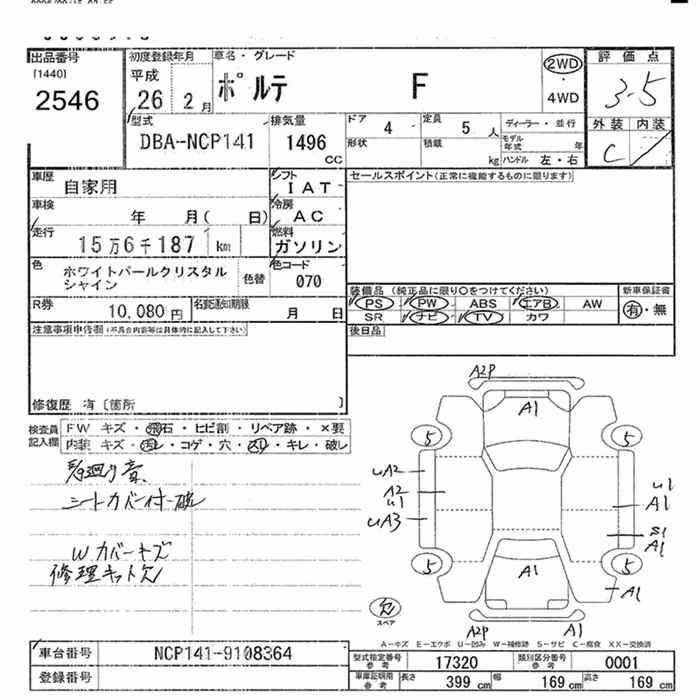 出品番号
[1440]
2546
初度登録年月
平成
26 2 月
車名・グレード
ポルテ F
2WD
・
4WD
評価点
3-5
外装 内装
C
型式
DBA-NCP141
排気量
1496
CC
ドア 4
形状
定員 5 人
積載 kg
ディーラー・並行
モデル
年式 年
ハンドル 左・右
車歴
自家用
車検
年 月( 日)
走行
15万6千187 km
色
ホワイトパールクリスタル
シャイン
色替
シフト
IAT
冷房
AC
燃料
ガソリン
色コード
070
R券
10,080 円
名変通知期限
月 日
セールスポイント(正常に機能するものに限ります)
装備品 (純正品に限り○をつけてください)
PS PW ABS エアB AW
SR ナビ TV カワ
新車保証書
有・無
後日品
注意事項申告欄(不具合内容等は具体的に記入して下さい)
修復歴 有〔箇所 〕
検査員
記入欄
FW キズ・飛石・ヒビ割・リペア跡・×要
内装 キズ・汚レ・コゲ・穴・スリ・キレ・破レ
シートカバー付・破
Wカバーキズ
修理キット欠
A2P
A1
5 5
uA2
A2
u1
uA3
u1
A1
S1
A1
5 5
A1
A1
欠
スペア
A2P A1
A-キズ E-エクボ U-凹み W-補修跡 S-サビ C-腐食 XX-交換済
車台番号
NCP141-9108364
登録番号
型式指定番号
参考
17320
類別区分番号
参考
0001
車庫証明用
参考
長さ 399 cm
幅 169 cm
高さ 169 cm